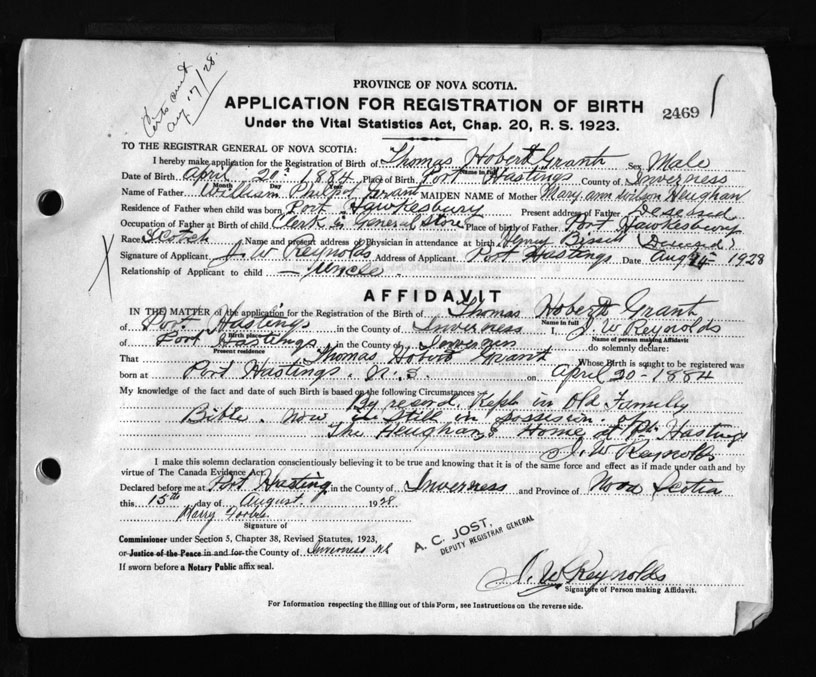 Certs cert
Aug 17/28
PROVINCE OF NOVA SCOTIA.
APPLICATION FOR REGISTRATION OF BIRTH
2469
Under the Vital Statistics Act, Chap. 20, R. S. 1923.
TO THE REGISTRAR GENERAL OF NOVA SCOTIA:
I hereby make application for the Registration of Birth of Thomas Hobert Grant Sex Male
Name in full
Date of Birth April 20th 1884 Place of Birth Port Hastings County of Inverness
Month Day Year
Name of Father William Philip Grant MAIDEN NAME of Mother Mary Ann Heughan
Residence of Father when child was born Port Hawkesbury Present address of Father Deseased
Occupation of Father at Birth of child Clerk in General Store Place of birth of Father Port Hawkesbury
Race Scotch Name and present address of Physician in attendance at birth Henry Bissett Deceased
Signature of Applicant J. W Reynolds Address of Applicant Port Hastings Date Aug 15 1928
Relationship of Applicant to child — Uncle
AFFIDAVIT
IN THE MATTER of the application for the Registration of the Birth of Thomas Hobert Grant
Name in full
of Port Hastings in the County of Inverness I, J. W Reynolds
Birth place Name of person making Affidavit
of Port Hastings in the County of Inverness do solemnly declare:
Present residence
That Thomas Hobert Grant Whose Birth is sought to be registered was
born at Port Hastings. N. S. on April 20 - 1884
My knowledge of the fact and date of such Birth is based on the following Circumstances
By record Kept in Old Family
Bible. Now still in possesion of
The Heughans Home at Pt. Hastings
J. W Reynolds
I make this solemn declaration conscientiously believing it to be true and knowing that it is of the same force and effect as if made under oath and by
virtue of The Canada Evidence Act.
Declared before me at Port Hasting in the County of Inverness and Province of Nova Scotia
this 15th day of August 1928
Signature of
Commissioner under Section 5, Chapter 38, Revised Statutes, 1923,
or Justice of the Peace in and for the County of Inverness N.S.
If sworn before a Notary Public affix seal.
A. C. JOST.
DEPUTY REGISTRAR GENERAL
J. W Reynolds
Signature of Person making Affidavit.
For Information respecting the filling out of this Form, see Instructions on the reverse side.